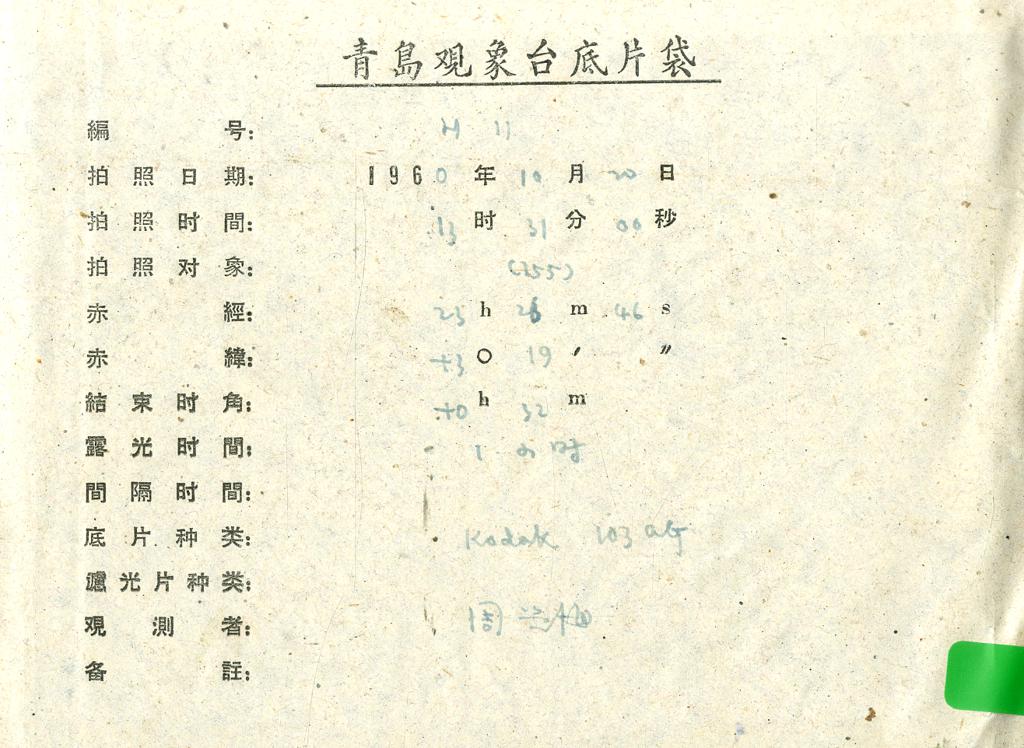 青島观象台底片袋
編号: H 11
拍照日期: 1960年10月20日
拍照时間: 13时31分00秒
拍照对象: (255)
赤經: 23h 26m 46s
赤緯: +3° 19′ ″
結束时角: +0h 32m
露光时間: 1小时
間隔时間:
底片种类: Kodak 103aG
濾光片种类:
观測者: 周
备註: